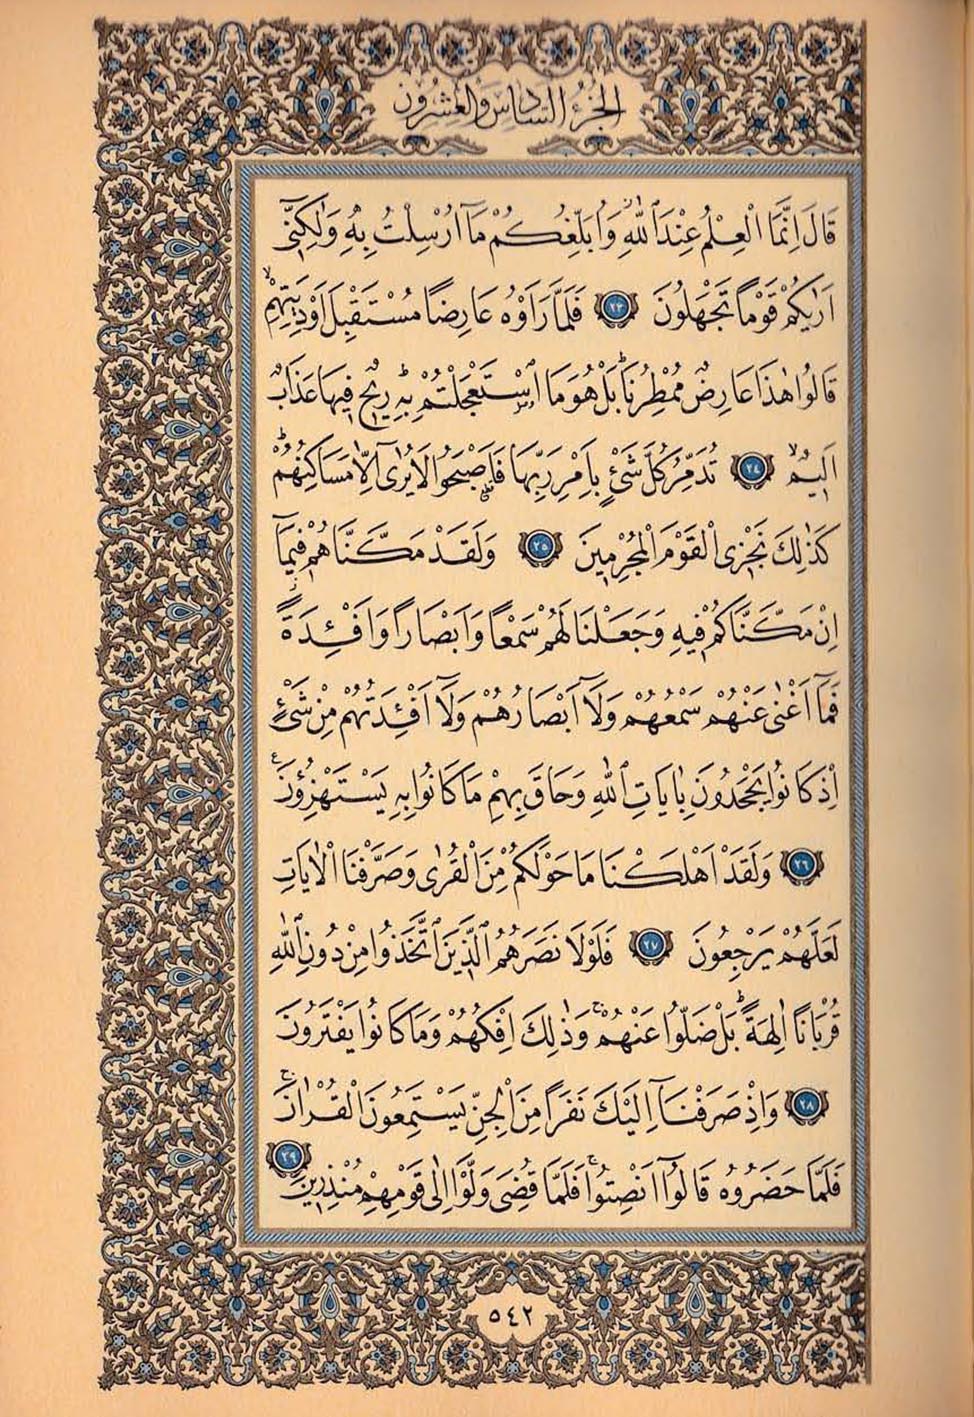 الجزء السادس والعشرون
قَالَ اِنَّمَا الْعِلْمُ عِنْدَ اللّٰهِۘ وَاُبَلِّغُكُمْ مَٓا اُرْسِلْتُ بِه۪ وَلٰكِنّ۪ٓي
اَرٰيكُمْ قَوْماً تَجْهَلُونَ ﴿٢٣﴾ فَلَمَّا رَاَوْهُ عَارِضاً مُسْتَقْبِلَ اَوْدِيَتِهِمْۙ
قَالُوا هٰذَا عَارِضٌ مُمْطِرُنَاۜ بَلْ هُوَ مَا اسْتَعْجَلْتُمْ بِه۪ۜ ر۪يحٌ ف۪يهَا عَذَابٌ
اَل۪يمٌۙ ﴿٢٤﴾ تُدَمِّرُ كُلَّ شَيْءٍ بِاَمْرِ رَبِّهَا فَاَصْبَحُوا لَا يُرٰٓى اِلَّا مَسَاكِنُهُمْۜ
كَذٰلِكَ نَجْزِي الْقَوْمَ الْمُجْرِم۪ينَ ﴿٢٥﴾ وَلَقَدْ مَكَّنَّاهُمْ ف۪يمَٓا
اِنْ مَكَّنَّاكُمْ ف۪يهِ وَجَعَلْنَا لَهُمْ سَمْعاً وَاَبْصَاراً وَاَفْـِٔدَةًۘ
فَمَٓا اَغْنٰى عَنْهُمْ سَمْعُهُمْ وَلَٓا اَبْصَارُهُمْ وَلَٓا اَفْـِٔدَتُهُمْ مِنْ شَيْءٍ
اِذْ كَانُوا يَجْحَدُونَ بِاٰيَاتِ اللّٰهِ وَحَاقَ بِهِمْ مَا كَانُوا بِه۪ يَسْتَهْزِؤُ۫نَ۟
﴿٢٦﴾ وَلَقَدْ اَهْلَكْنَا مَا حَوْلَكُمْ مِنَ الْقُرٰى وَصَرَّفْنَا الْاٰيَاتِ
لَعَلَّهُمْ يَرْجِعُونَ ﴿٢٧﴾ فَلَوْلَا نَصَرَهُمُ الَّذ۪ينَ اتَّخَذُوا مِنْ دُونِ اللّٰهِ
قُرْبَاناً اٰلِهَةًۜ بَلْ ضَلُّوا عَنْهُمْۚ وَذٰلِكَ اِفْكُهُمْ وَمَا كَانُوا يَفْتَرُونَ
﴿٢٨﴾ وَاِذْ صَرَفْنَٓا اِلَيْكَ نَفَراً مِنَ الْجِنِّ يَسْتَمِعُونَ الْقُرْاٰنَۚ
فَلَمَّا حَضَرُوهُ قَالُٓوا اَنْصِتُواۚ فَلَمَّا قُضِيَ وَلَّوْا اِلٰى قَوْمِهِمْ مُنْذِر۪ينَ ﴿٢٩﴾
٥٤٢